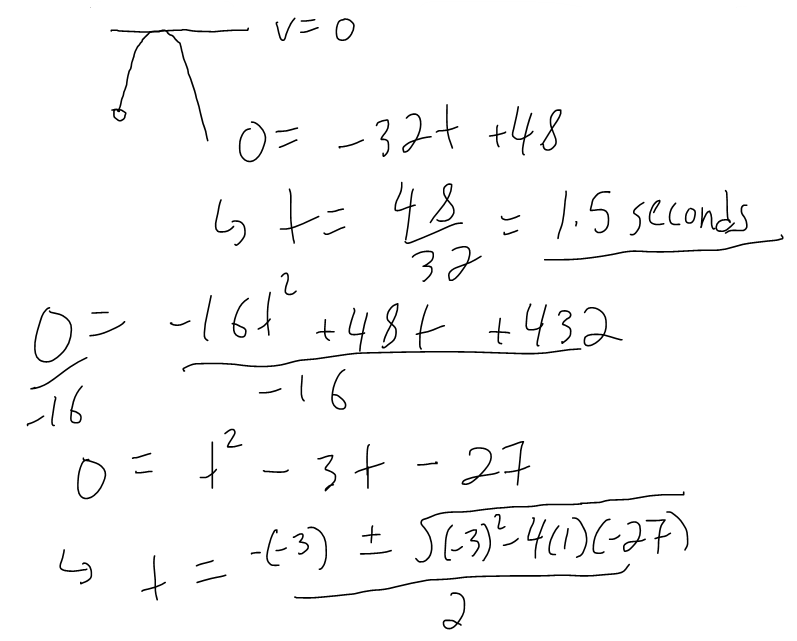 v = 0
0 = -32t + 48
↳ t = 48/32 = 1.5 seconds
0/-16 = (-16t² + 48t + 432)/-16
0 = t² - 3t - 27
↳ t = (-(-3) ± √((-3)² - 4(1)(-27)))/2